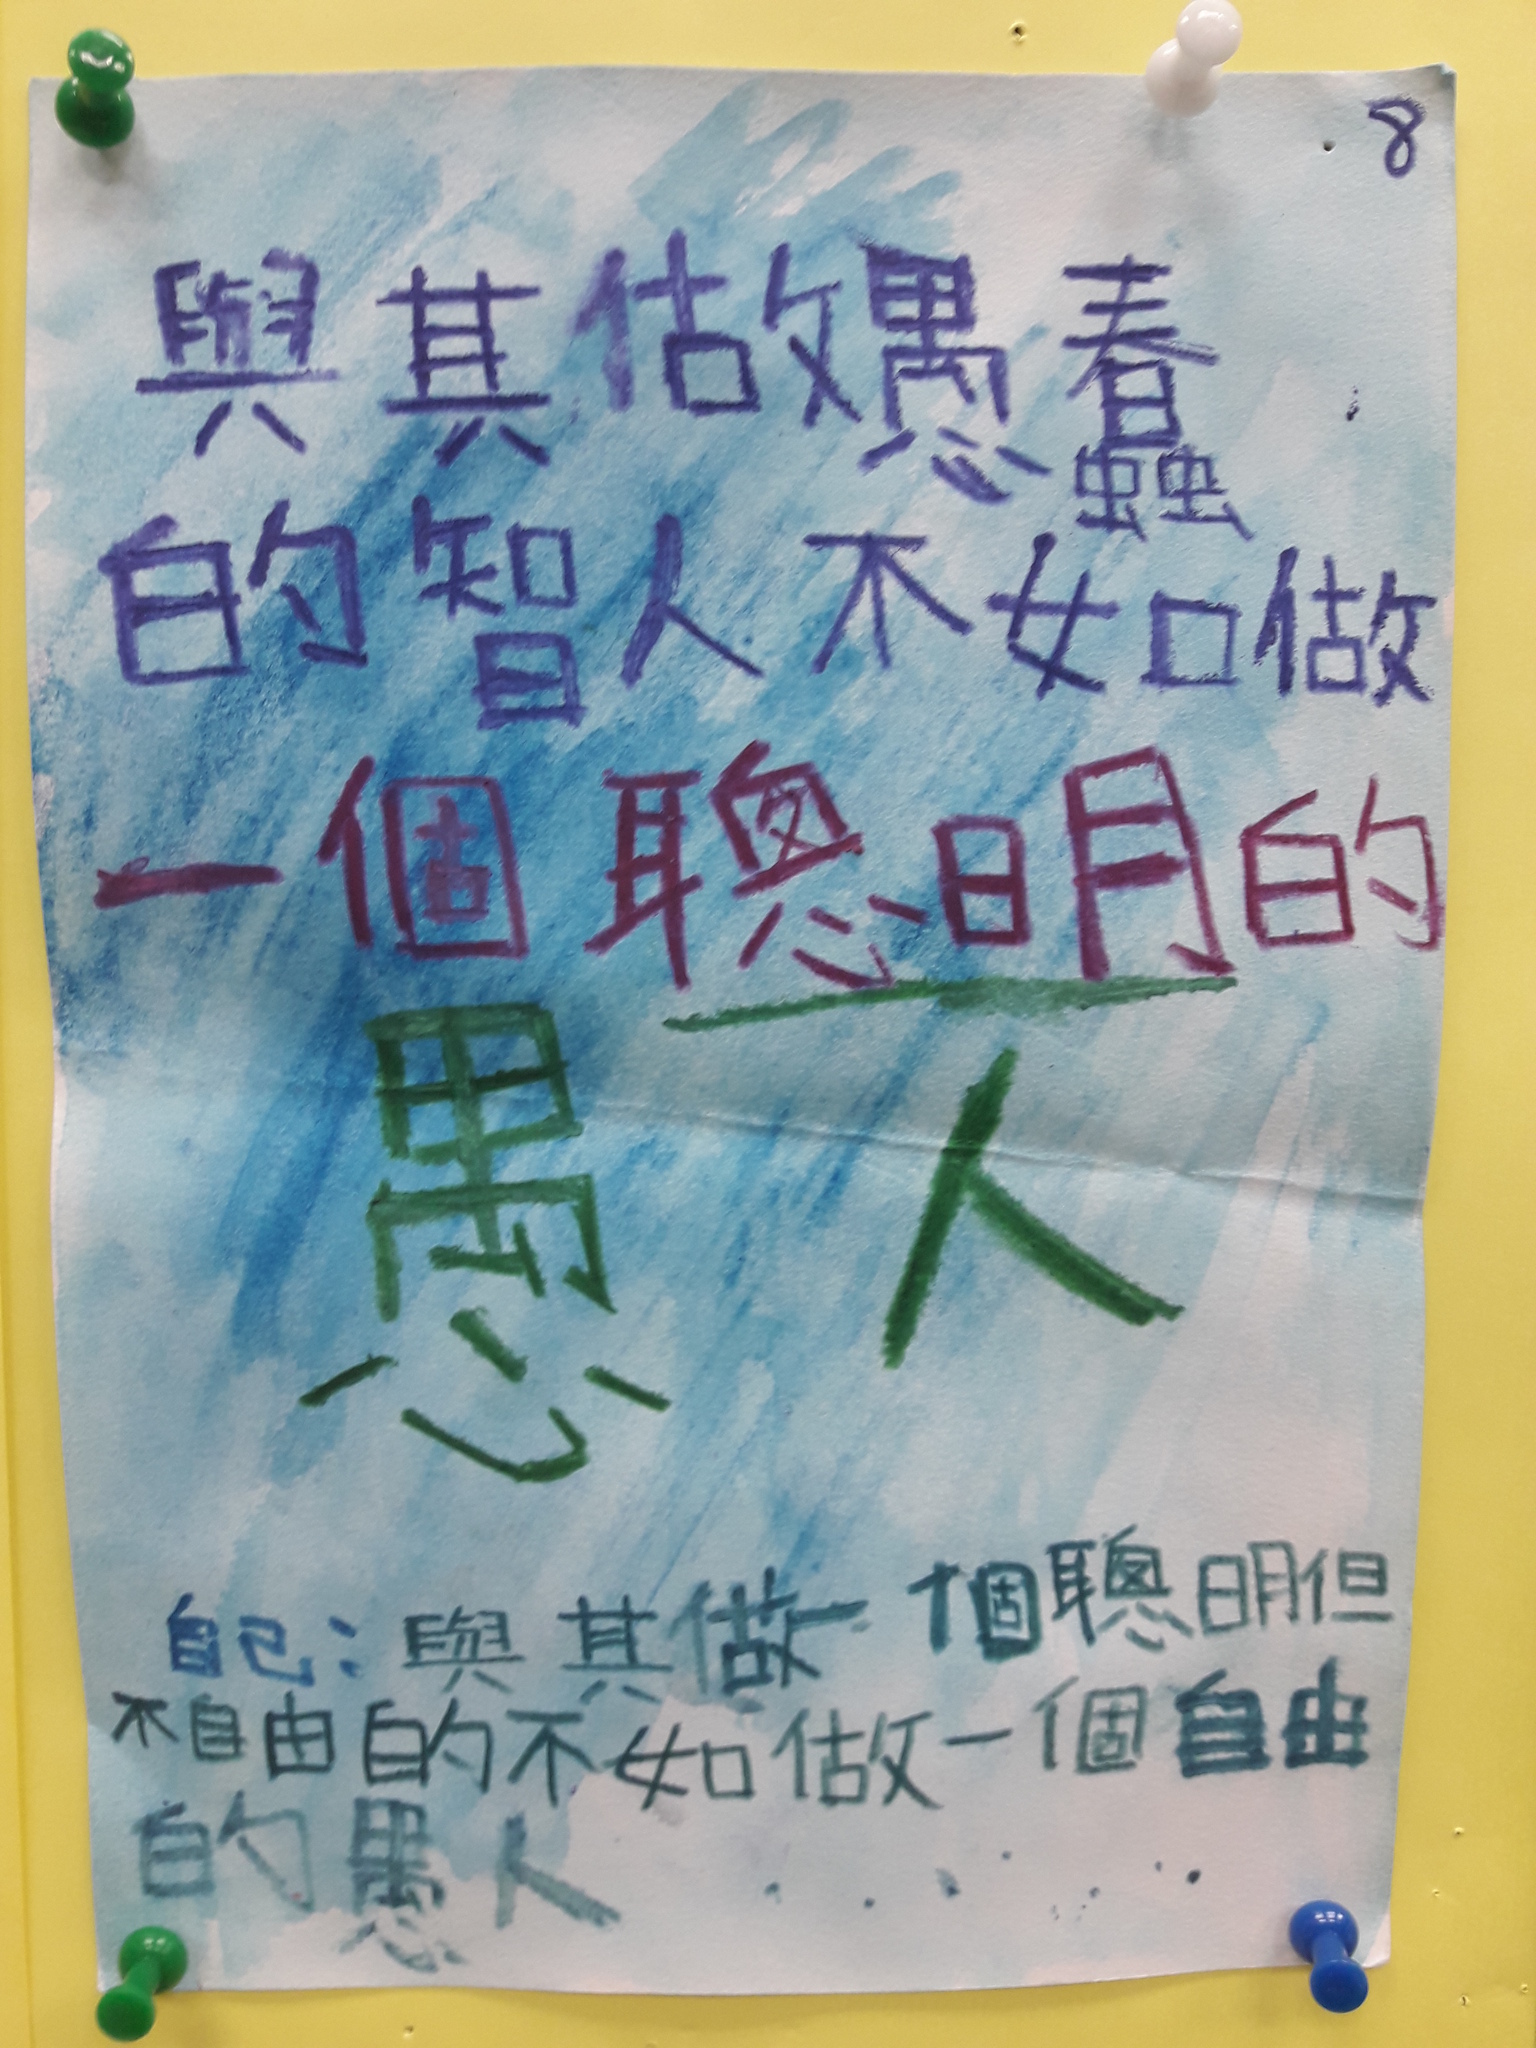 8
與其做愚蠢
的智人不如做
一個聰明的
愚人
自己：與其做一個聰明但
不自由的不如做一個自由
的愚人